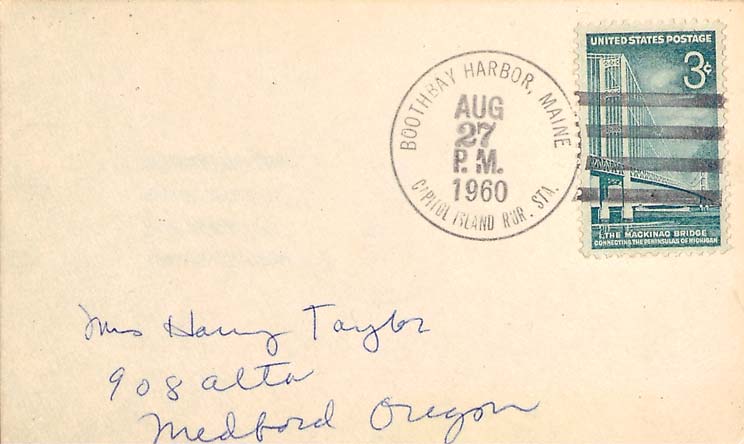 UNITED STATES POSTAGE
3¢
BOOTHBAY HARBOR, MAINE
AUG
27
P.M.
1960
CAPITOL ISLAND RUR. STA.
THE MACKINAC BRIDGE
CONNECTING THE PENINSULAS OF MICHIGAN
Mrs Harry Taylor
908 Alta
Medford Oregon